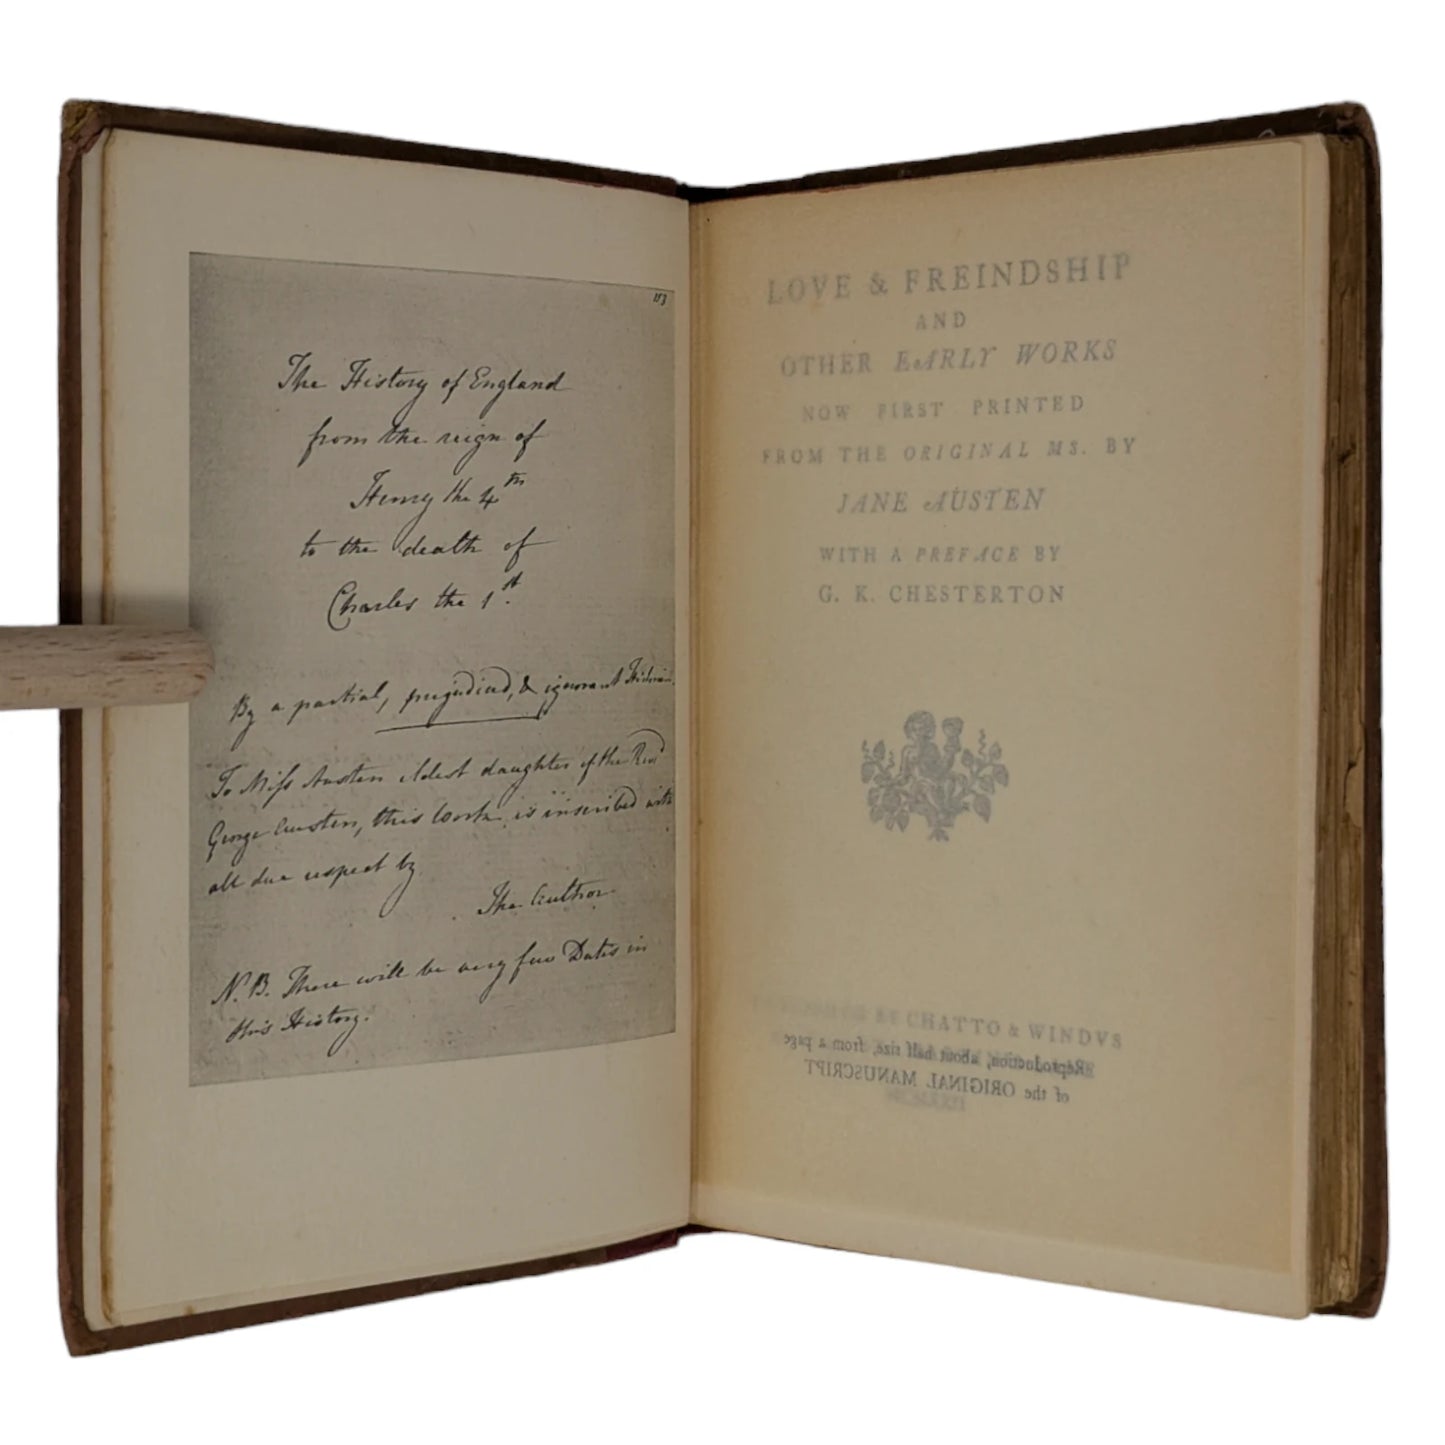 113
The History of England
from the reign of
Henry the 4th
to the death of
Charles the 1st.
By a partial, prejudiced, & ignorant Historian.
To Miss Austen eldest daughter of the Revd
George Austen, this Work is inscribed with
all due respect by
The Author
N.B. There will be very few Dates in
this History.
LOVE & FREINDSHIP
AND
OTHER EARLY WORKS
NOW FIRST PRINTED
FROM THE ORIGINAL MS. BY
JANE AUSTEN
WITH A PREFACE BY
G. K. CHESTERTON
CHATTO & WINDVS
Reproduction, about half size, from a page
of the ORIGINAL MANUSCRIPT